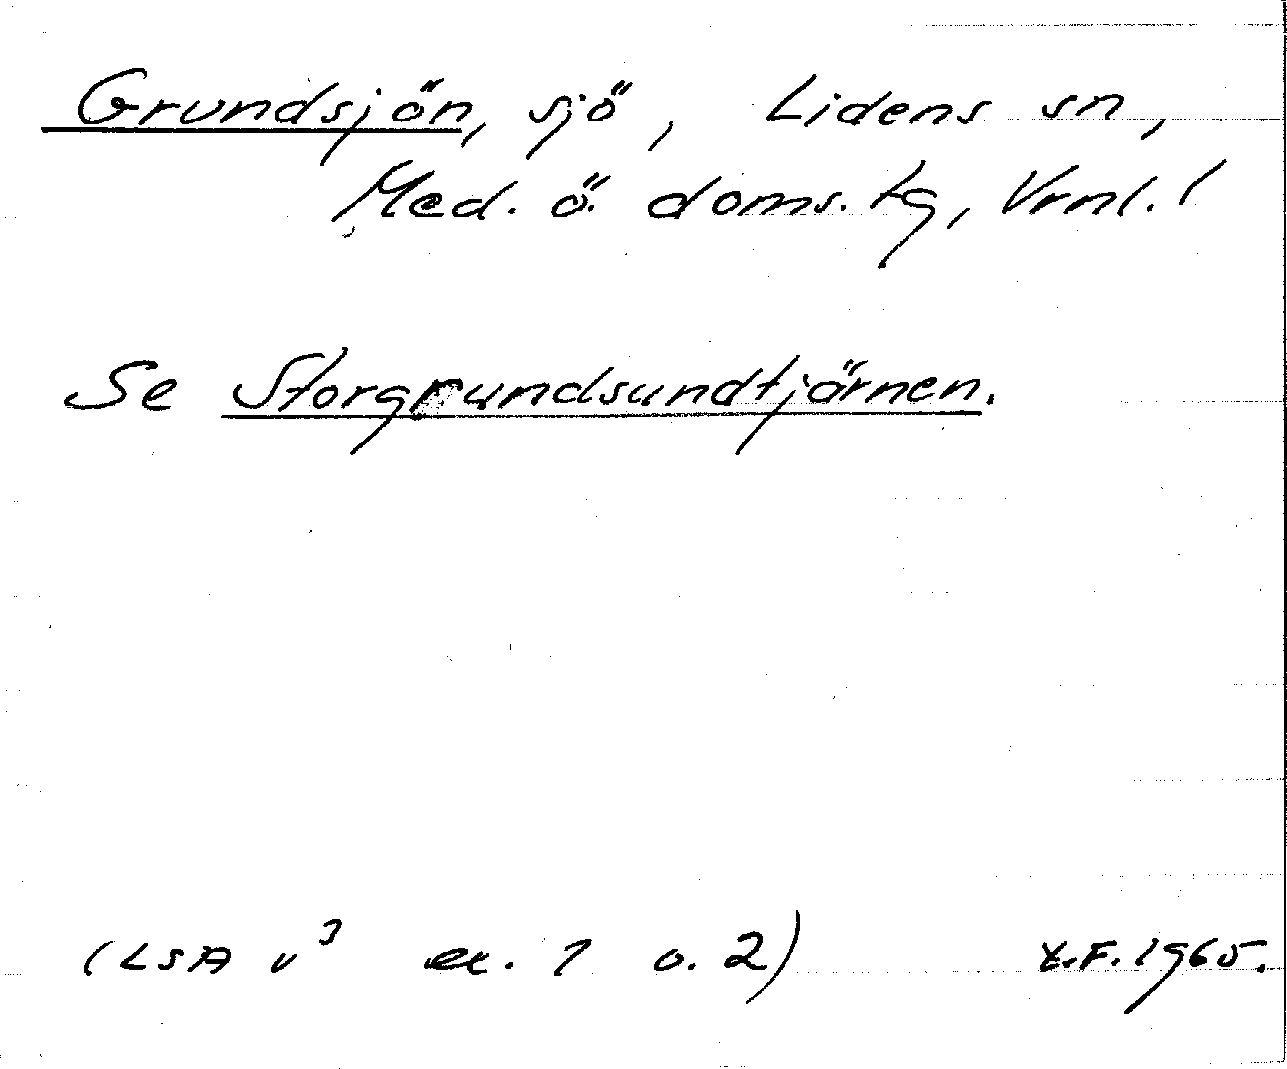 Grundsjön, sjö, Lidens sn,
Med. ö. doms. tg, Vrnl. l
Se Storgrundsundtjärnen.
(LSA v³ ex. 1 o. 2) F. 1965.